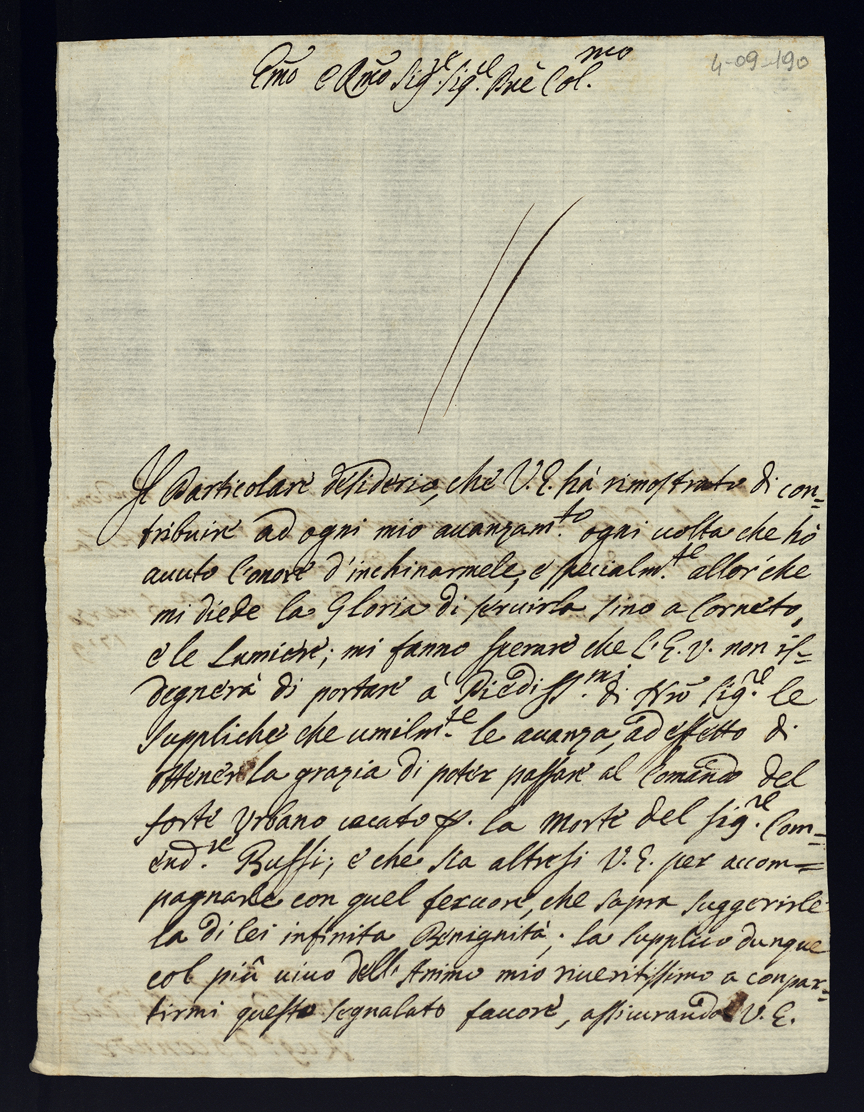 4-09-190
Emo e Rmo Sigre. Sigre. Pne Col.mo
Il Particolare desiderio, che V. E. hà rimostrato di con=
tribuire ad ogni mio auanzam.to ogni uolta che hò
auuto l'onore d'inchinarmele, e specialm.te allor'che
mi diede la Gloria di seruirla sino a Corneto,
e le Lumiere; mi fanno sperare che l'E. V. non is=
degnerà di portare à Piedi SS.mi di Nro Sig.re le
suppliche che umilm.te le auanza, ad effetto di
ottener la grazia di poter passare al Comando del
forte Urbano uacato p. la Morte del Sig.re Com=
end.re Buffi; e che sia altresi V. E. per accom=
pagnarle con quel feruore, che sapra suggerirle
la di lei infinita Benignità; la supplico dunque
col più uiuo dell'Animo mio riueritissimo a conpar=
tirmi questo segnalato fauore, assicurando V. E.